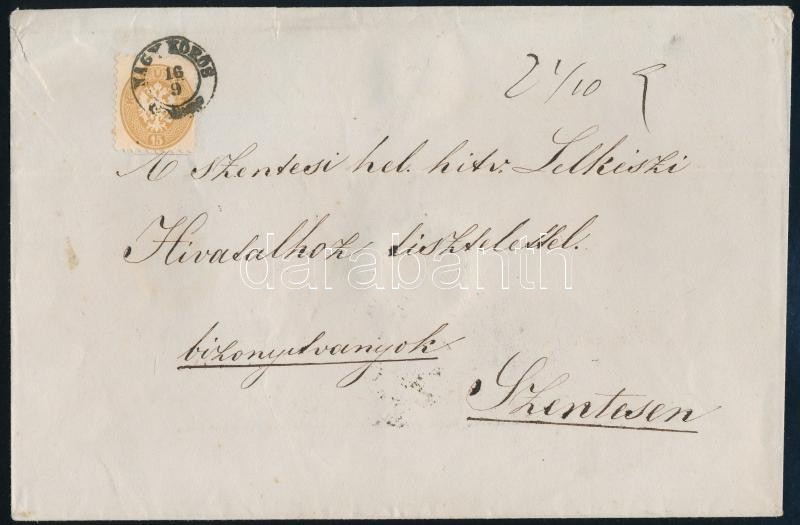 NAGY KŐRÖS
16
9
15
2 1/10
A szentesi hel. hitv. Lelkészi
Hivatalhoz tisztelettel.
darabanth
bizonyitványok
Szentesen